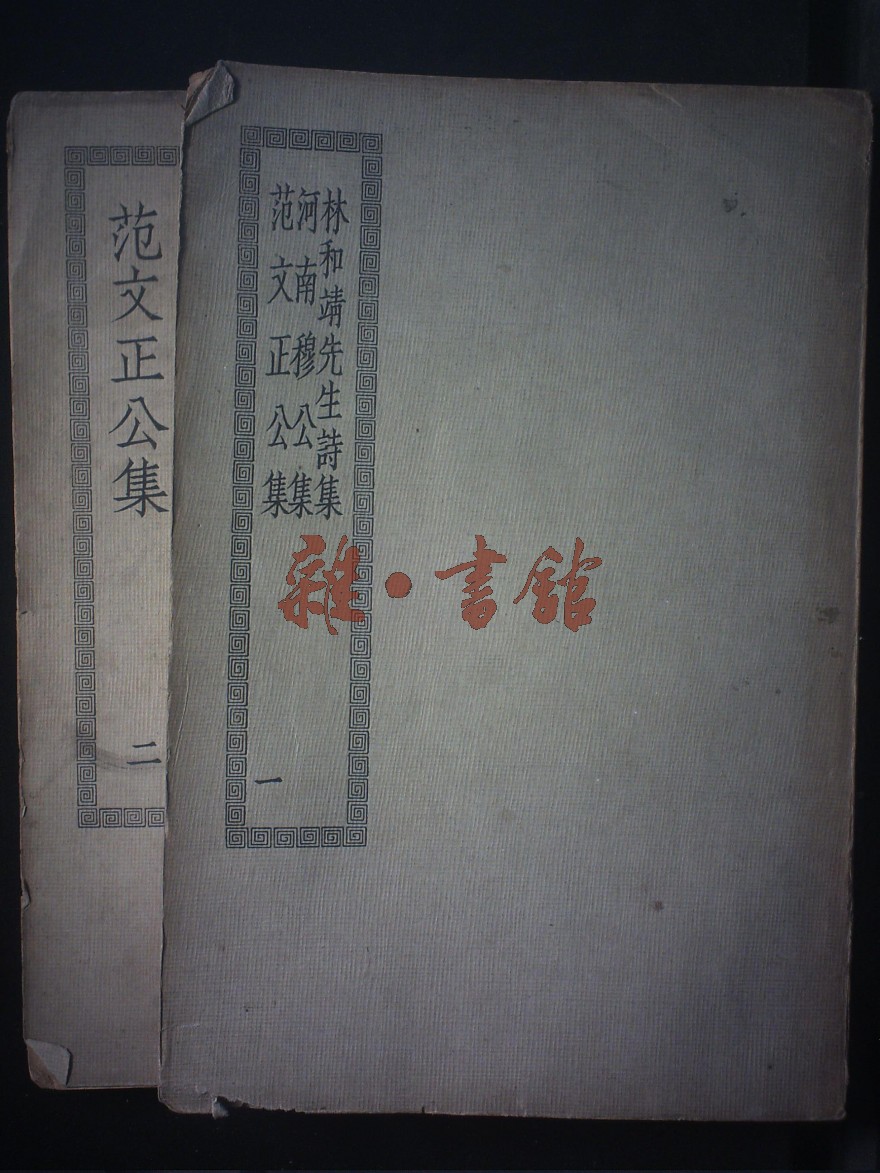 林和靖先生詩集
河南穆公集
范文正公集
一
范文正公集
二
雜·書館